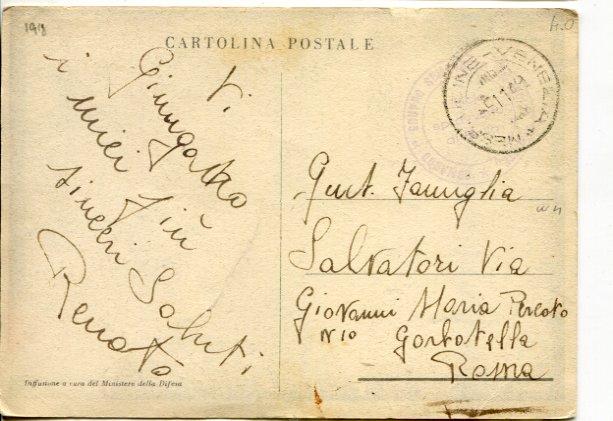 1918
4.0
CARTOLINA POSTALE
Vi
Giungano
i miei più
sinceri Saluti
Renato
VENEZIA
Gent. Famiglia
Salvatori Via
Giovanni Maria Percoto
N 10 Garbatella
Roma
Diffusione a cura del Ministero della Difesa